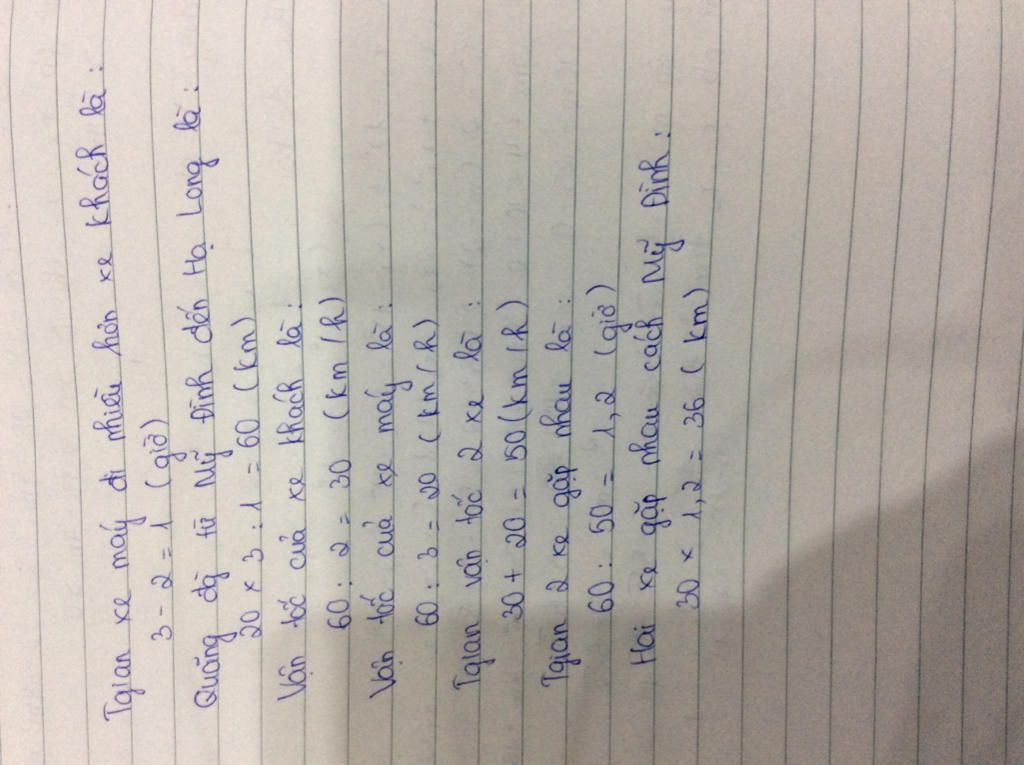 Tgian xe máy đi nhiều hơn xe khách là :
3 - 2 = 1 ( giờ )
Quãng đg từ Mỹ Đình đến Hạ Long là :
20 x 3 : 1 = 60 ( km )
Vận tốc của xe khách là :
60 : 2 = 30 ( km / h )
Vận tốc của xe máy là :
60 : 3 = 20 ( km / h )
Tgian vận tốc 2 xe là :
30 + 20 = 50 ( km / h )
Tgian 2 xe gặp nhau là :
60 : 50 = 1,2 ( giờ )
Hai xe gặp nhau cách Mỹ Đình :
30 x 1,2 = 36 ( km )